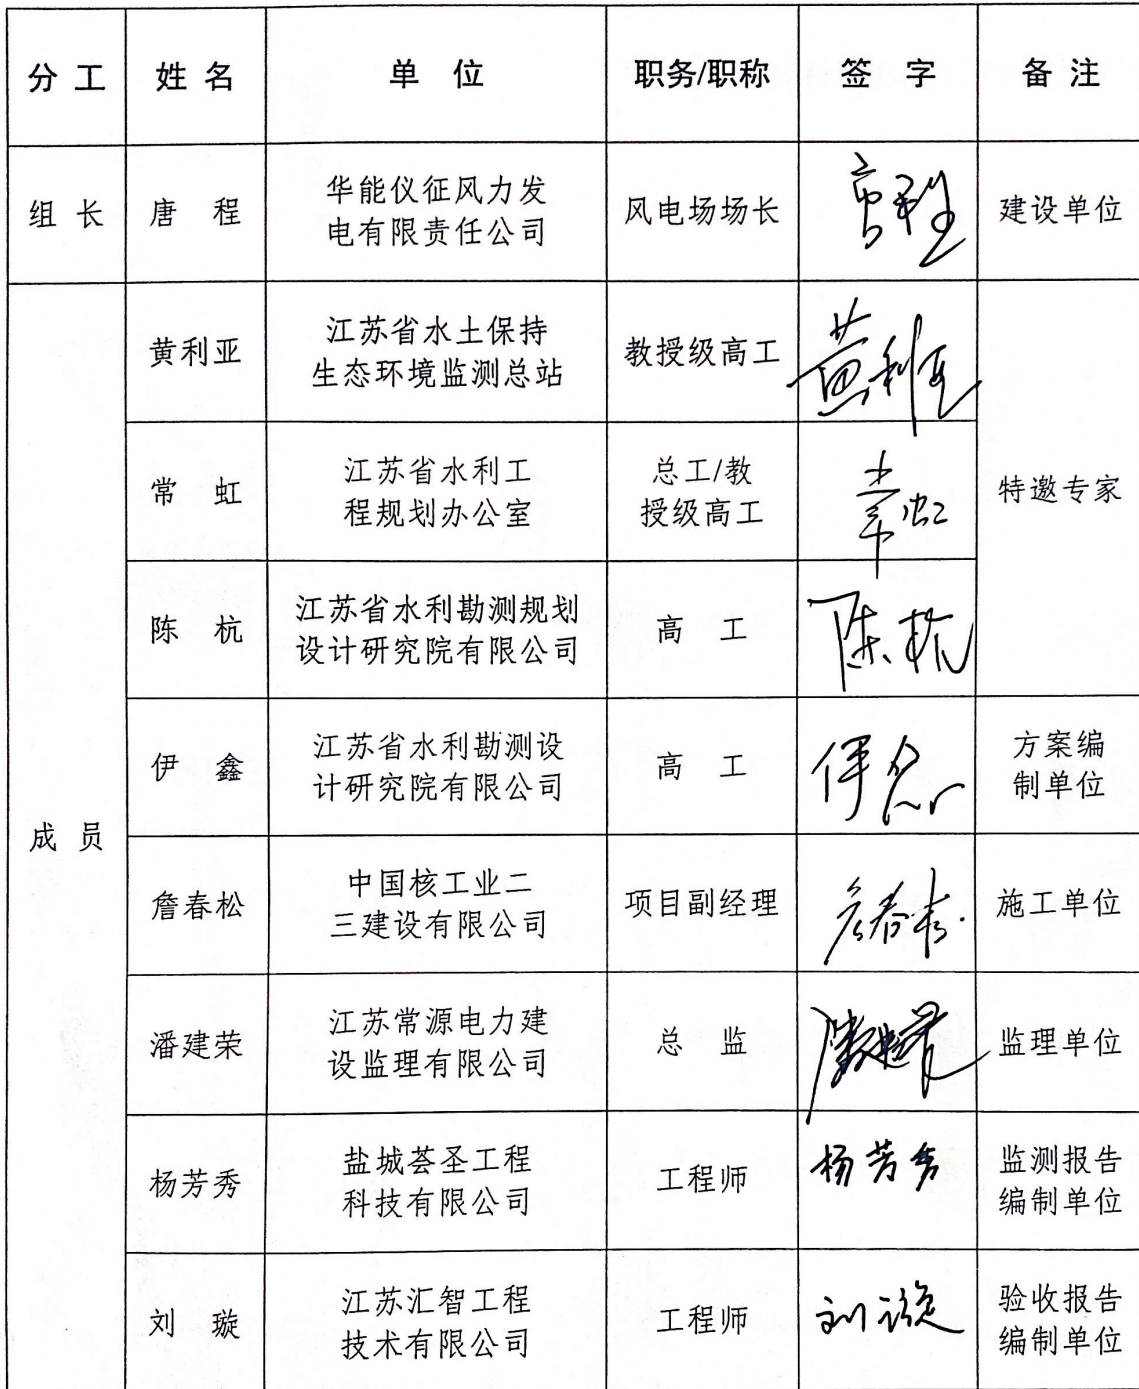 分工 姓名 单位 职务/职称 签字 备注
组长 唐程 华能仪征风力发
电有限责任公司 风电场场长 建设单位
黄利亚 江苏省水土保持
生态环境监测总站 教授级高工 黄利亚
常虹 江苏省水利工
程规划办公室 总工/教
授级高工 常虹 特邀专家
陈杭 江苏省水利勘测规划
设计研究院有限公司 高工 陈杭
伊鑫 江苏省水利勘测设
计研究院有限公司 高工 方案编
制单位
成员
詹春松 中国核工业二
三建设有限公司 项目副经理 施工单位
潘建荣 江苏常源电力建
设监理有限公司 总监 监理单位
杨芳秀 盐城荟圣工程
科技有限公司 工程师 杨芳秀 监测报告
编制单位
刘璇 江苏汇智工程
技术有限公司 工程师 刘璇 验收报告
编制单位